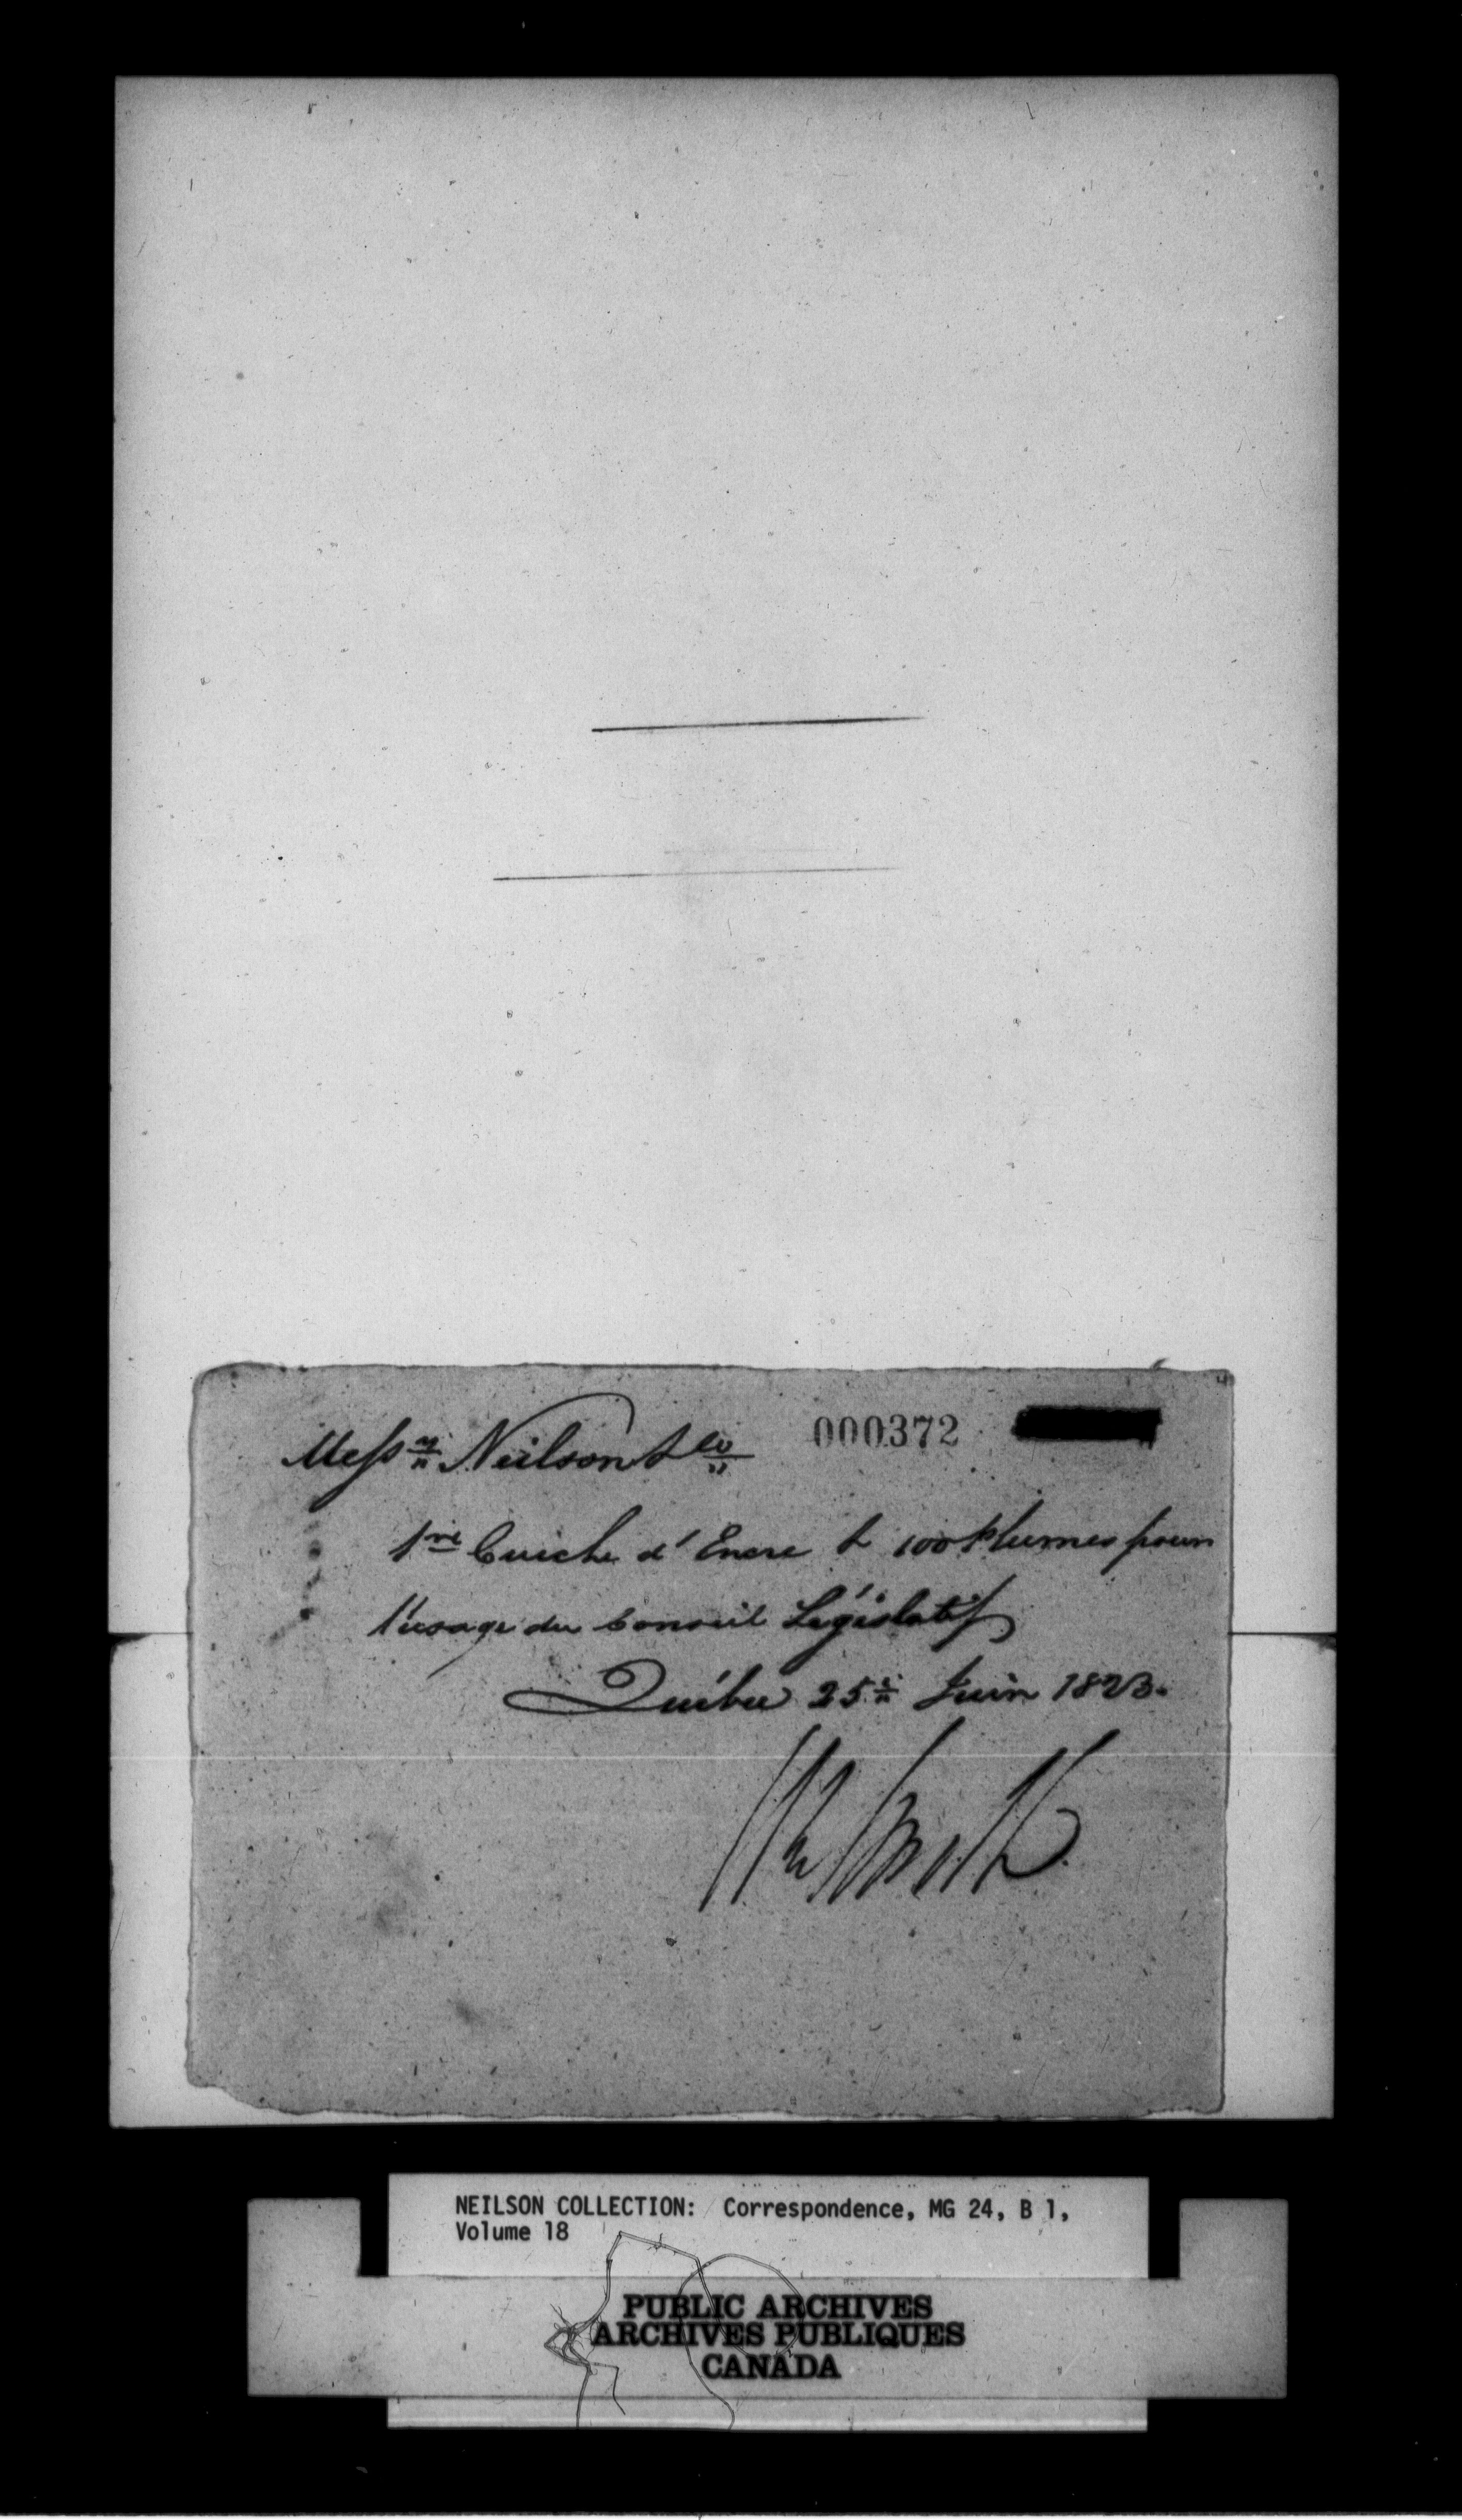 Messrs Neilson & Co
000372
1ne Cruche d'Encre & 100 Plumes pour
l'usage du Conseil Législatif
Québec 25e Juin 1823.
Wm Smith
NEILSON COLLECTION: Correspondence, MG 24, B 1,
Volume 18
PUBLIC ARCHIVES
ARCHIVES PUBLIQUES
CANADA